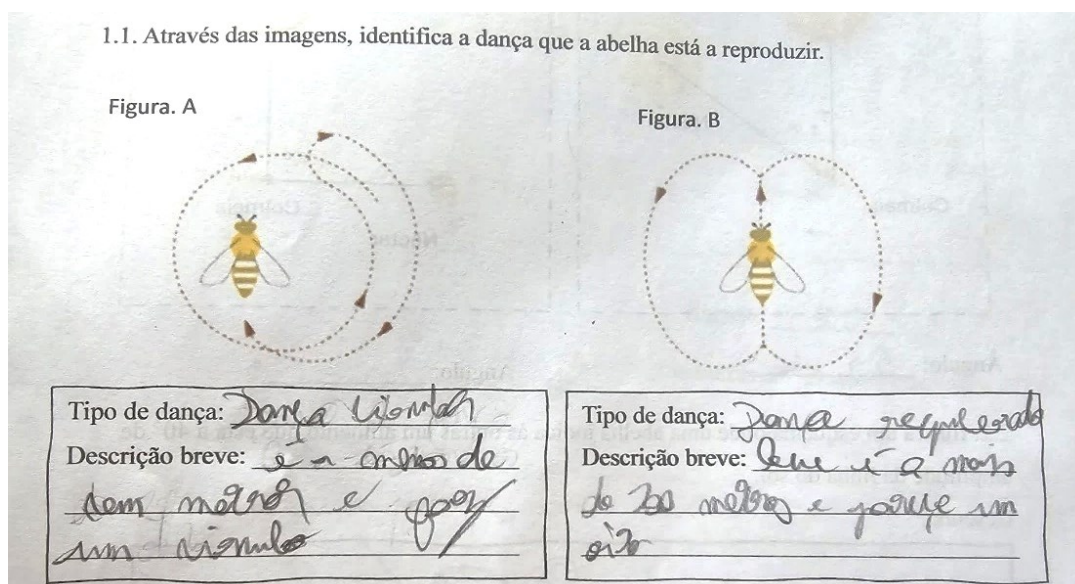 1.1. Através das imagens, identifica a dança que a abelha está a reproduzir.
Figura. A
Figura. B
Tipo de dança: Dança
Descrição breve: e a menos de
metros e faz
um
Tipo de dança: Dança
Descrição breve: é a mais
de metros e um
oito